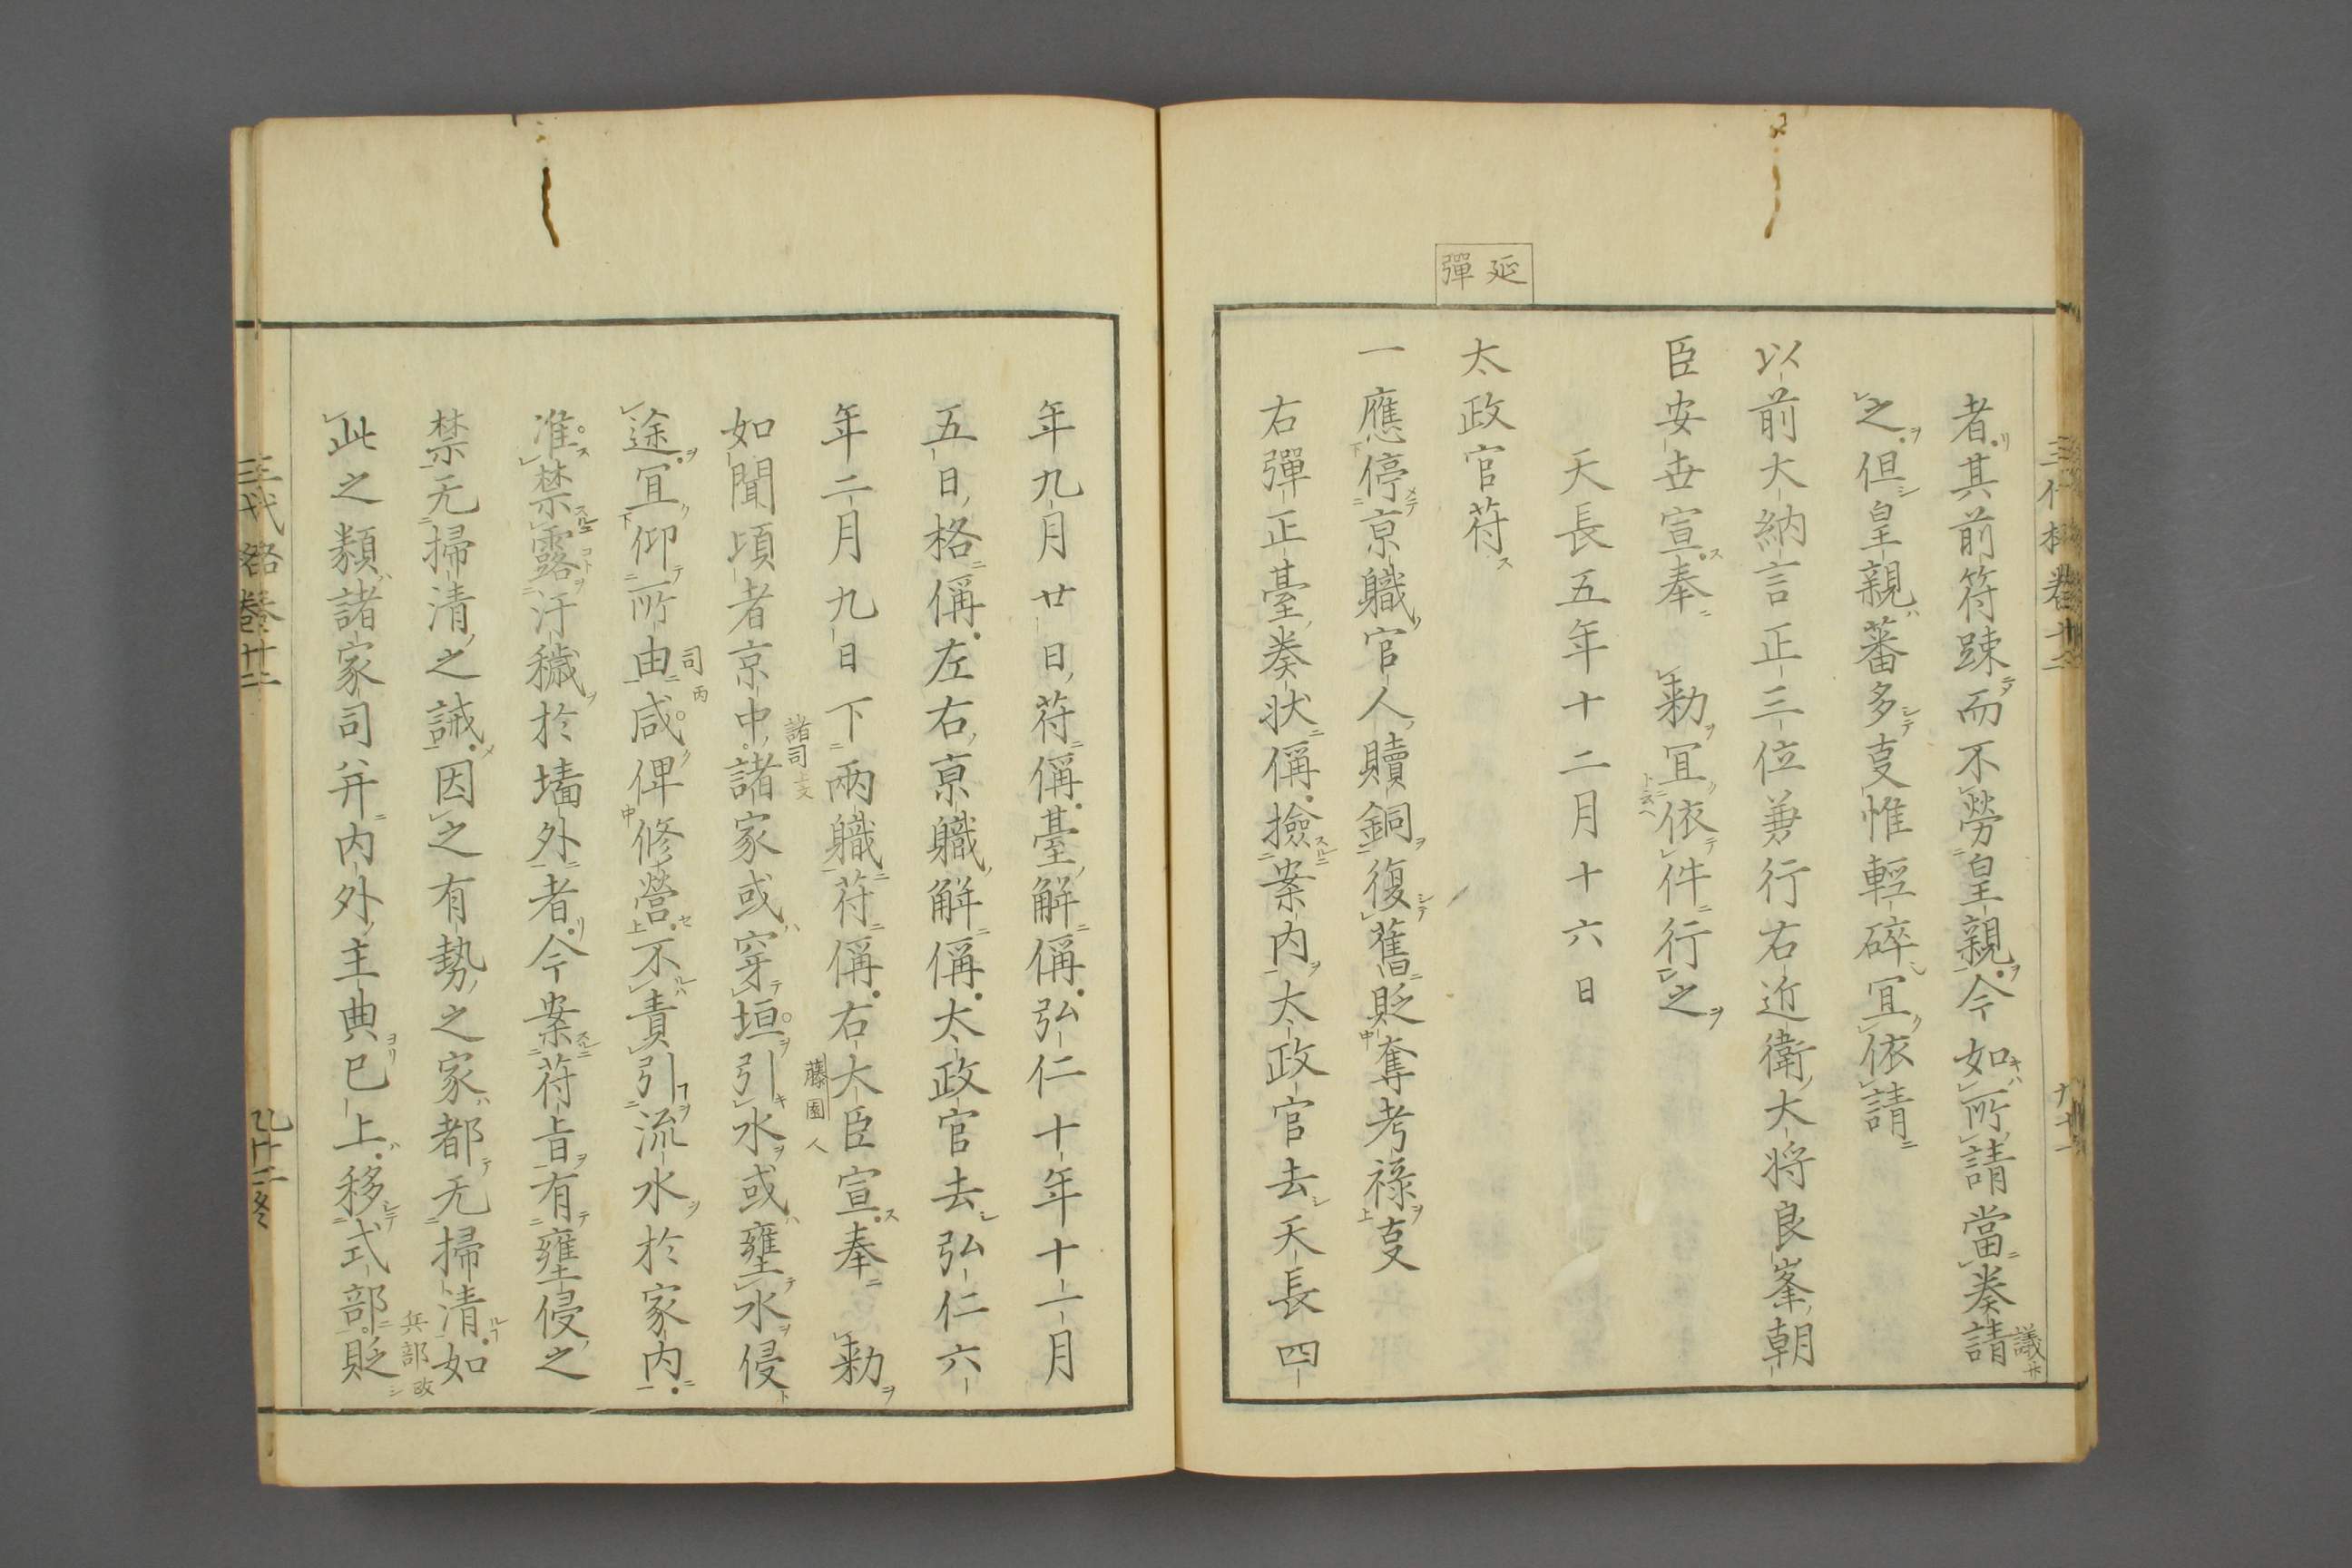 延彈
者其前符疎而不勞皇親今如所請當奏請
議
之但皇親蕃多叓惟輕碎冝依請
以前大納言正三位兼行右近衛大将良峯朝
臣安世宣奉 勅冝依件行之
天長五年十二月十六日
太政官苻
一應停亰職官人贖銅復舊貶奪考禄叓
右彈正臺奏状偁撿案内太政官去天長四
年九月廿日苻偁臺解偁弘仁十年十一月
五日格偁左右亰職解偁太政官去弘仁六
年二月九日下兩職苻偁右大臣宣奉 勅
藤園人
如聞頃者京中諸家或穿垣引水或壅水侵
諸司
途冝仰所由咸俾修營不責引流水於家内
司
准禁露汙穢於墻外者今案苻旨有壅侵之
禁无掃清之誡因之有勢之家都无掃清如
此之類諸家司并内外主典已上移式部貶
兵部
三代格巻廿二